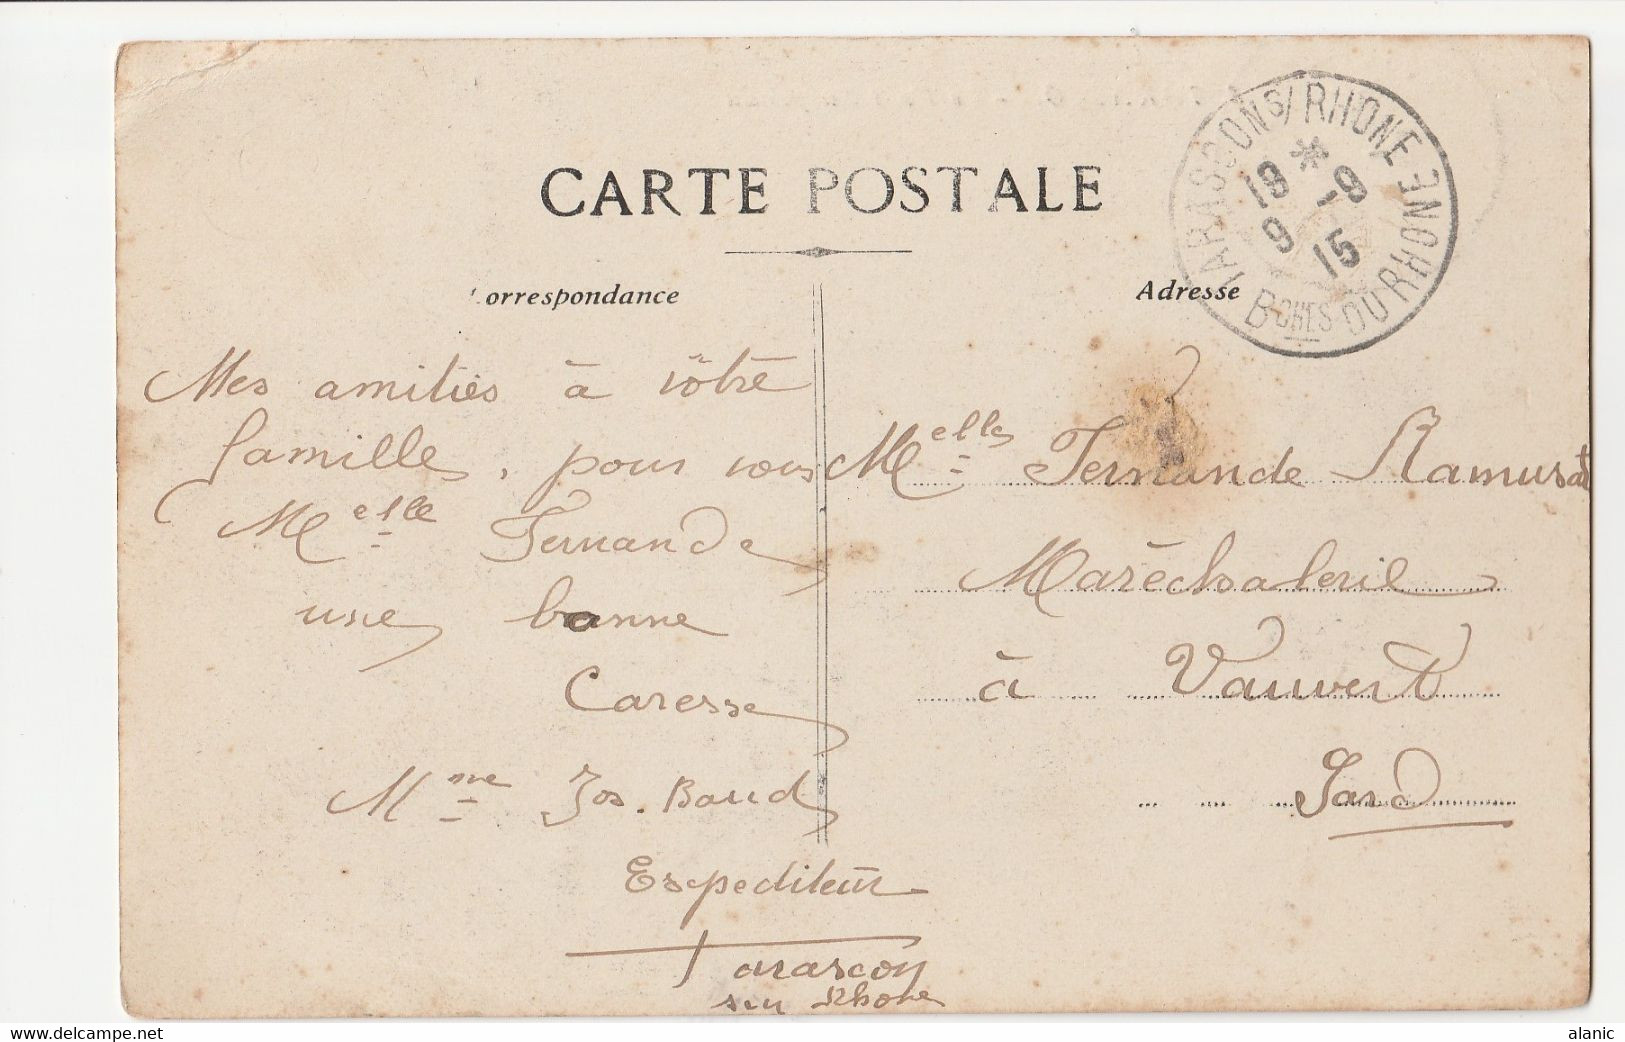 CARTE POSTALE
TARASCON S/ RHONE
18 * -9
9 15
BCHES DU RHONE
Correspondance
Adresse
Mes amitiés à vôtre
famille, pour vous
Melle Fernande
une bonne
Caresse
Mme Jos. Baud
Expediteur
Tarascon
sur Rhone
Melle Fernande Ramusat
Maréchalerie
à Vauvert
Gard
www.delcampe.net
alanic